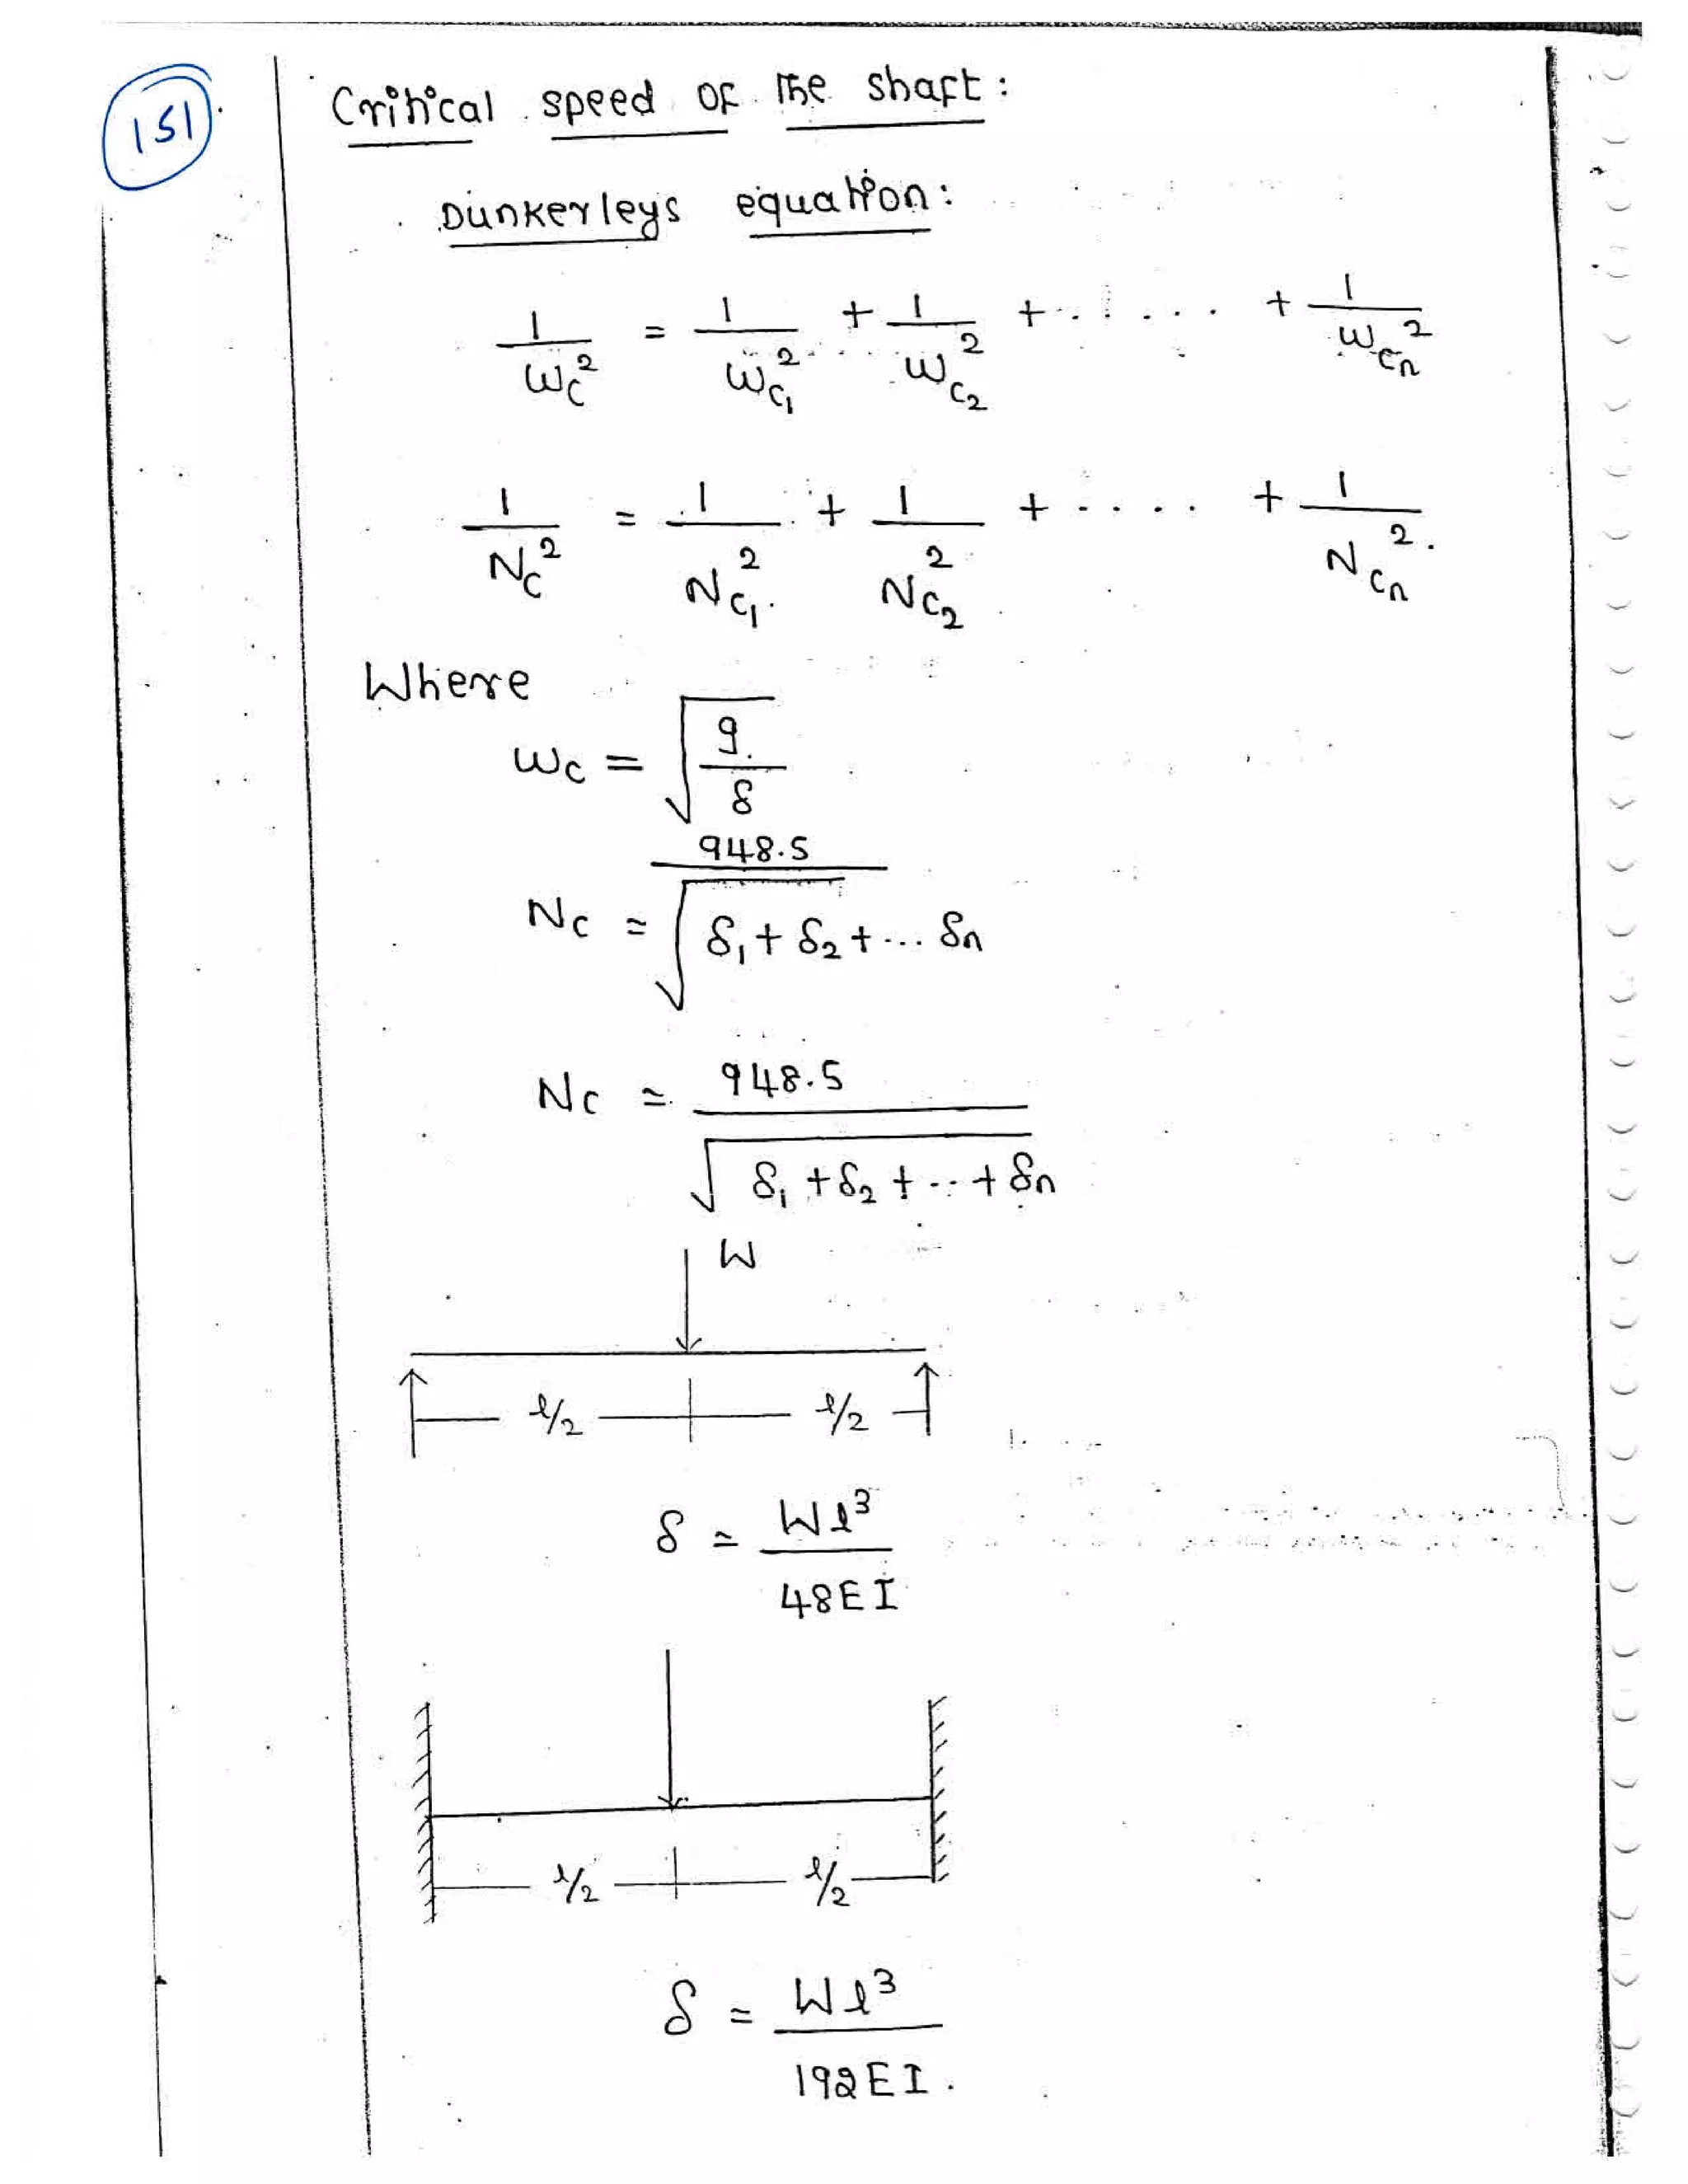 151
Critical speed of the shaft :
Dunkerleys equation :
1/ωc² = 1/ωc₁² + 1/ωc₂² + ..... + 1/ωcn²
1/Nc² = 1/Nc₁² + 1/Nc₂² + .... + 1/Ncn².
Where
ωc = √(g/δ)
Nc = 948.5/√(δ₁ + δ₂ + ... δn)
Nc = 948.5/√(δ₁ + δ₂ + ... + δn)
W
l/2 l/2
δ = Wl³/48EI
l/2 l/2
δ = Wl³/192EI.